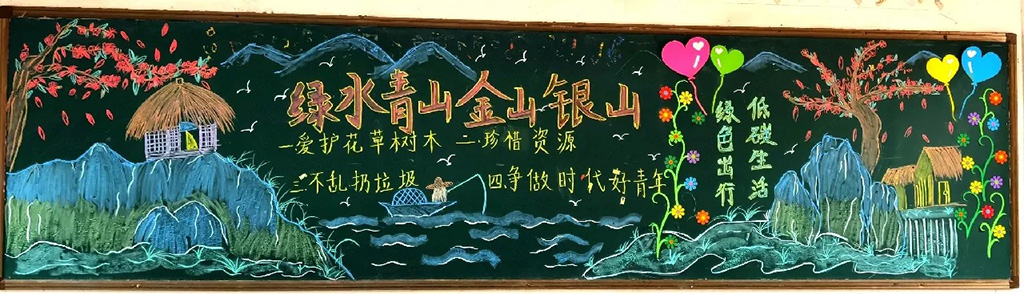 绿水青山金山银山
一爱护花草树木 二珍惜资源
三不乱扔垃圾 四争做时代好青年
低碳生活
绿色出行